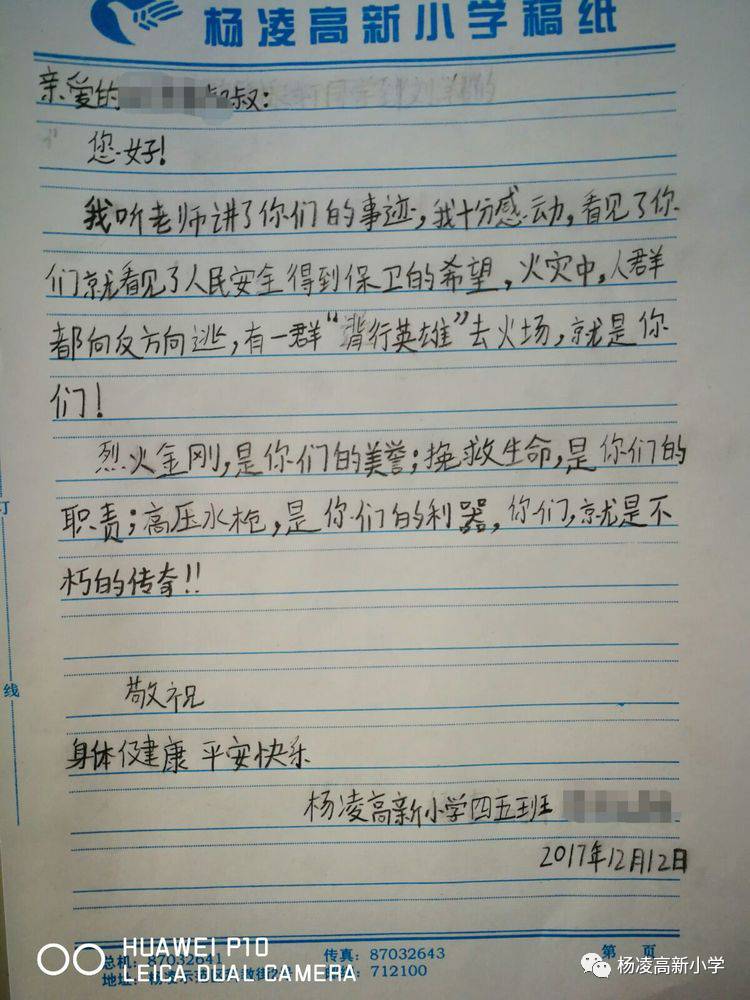 杨凌高新小学稿纸
亲爱的叔:
您好!
我听老师讲了你们的事迹,我十分感动,看见了你
们就看见了人民安全得到保卫的希望,火灾中,人群
都向反方向逃,有一群“背行英雄”去火场,就是你
们!
烈火金刚,是你们的美誉;挽救生命,是你们的
职责;高压水枪,是你们的利器,你们,就是不
朽的传奇!!
敬祝
身体健康 平安快乐
杨凌高新小学四五班
2017年12月12日
订
线
总机: 87032641 传真: 87032643 第 页
地址: 712100
HUAWEI P10
LEICA DUAL CAMERA
杨凌高新小学